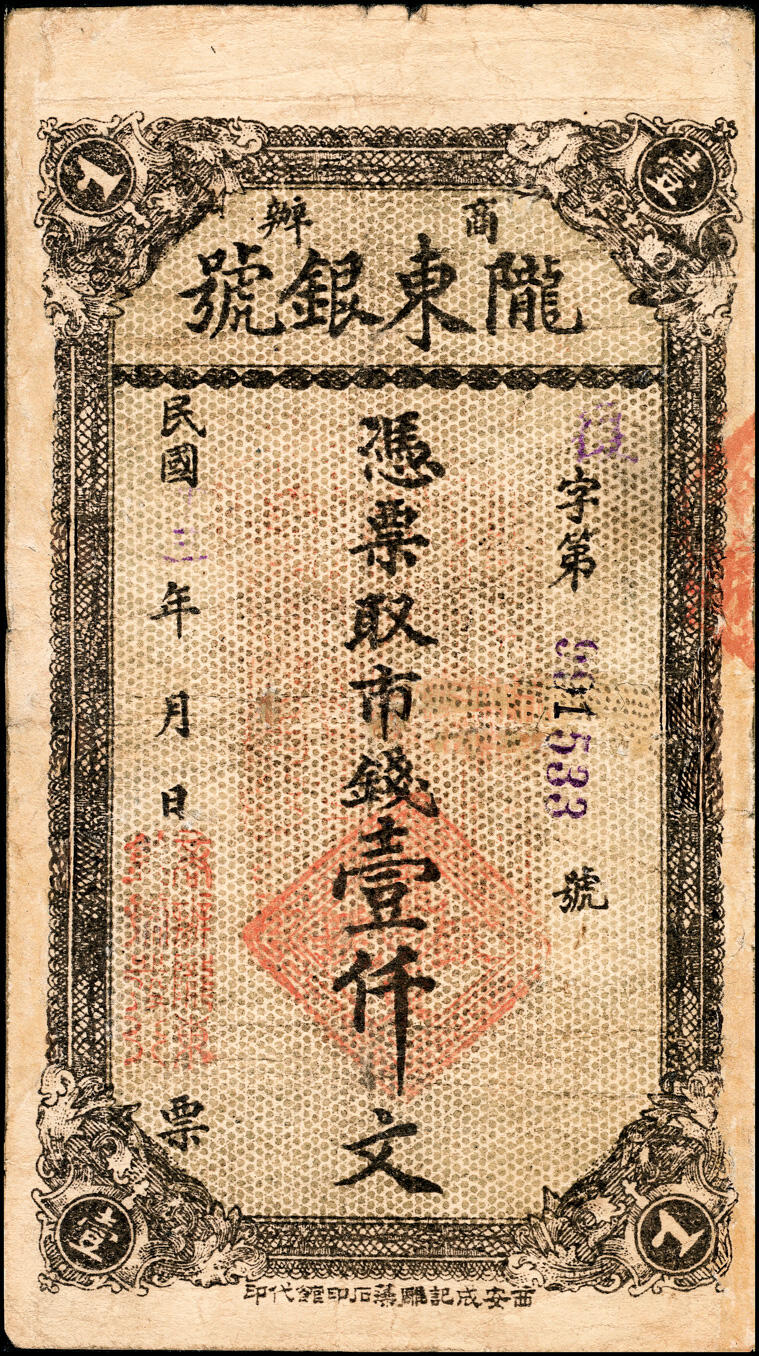 壹
1
商辦
隴東銀號
字第
991533
號
憑票取市錢壹仟文
民國
三
年
月
日
票
1
壹
西安成記雕藻石印館代印